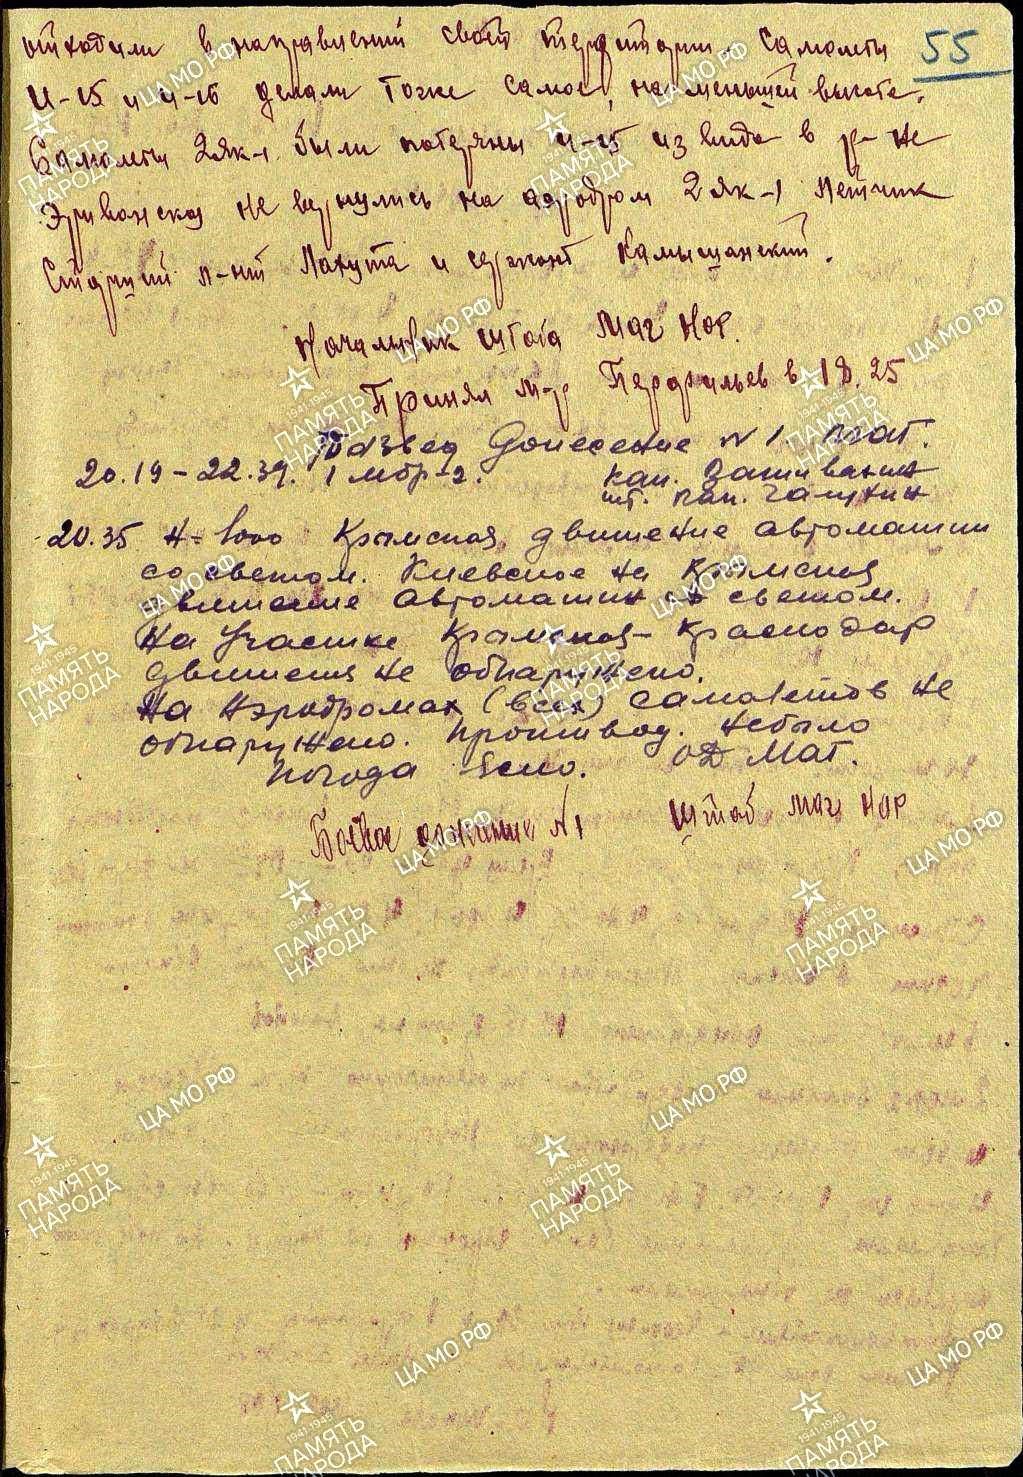 отходили в направлении своей территории. Самолеты
55
И-15 и И-16 делали тоже самое, на меньшей высоте.
Самолеты 2 Як-1 были потеряны И-15 из вида в р-не
Эриванской не вернулись на аэродром 2 Як-1 летчик
Старший л-нт Лахута и сержант Камышанский.
Начальник штаба маг Нор.
Принял м-р Перфильев в 18.25
Развед Донесение №1. МАГ.
20.19-22.39. 1 мбр-2. кап.
шт. кап.
20.35 Н-1000 Крымская движение автомашин
со светом. Киевское на Крымская
движение автомашин со светом.
На участке Крымская-Краснодар
движения не обнаружено.
На Аэродромах (всех) самолетов не
обнаружено. Противод. небыло
Погода Ясно. ОД МАГ.
Боевое донесение №1 штаб маг Нор
ПАМЯТЬ НАРОДА
1941-1945
ЦА МО РФ